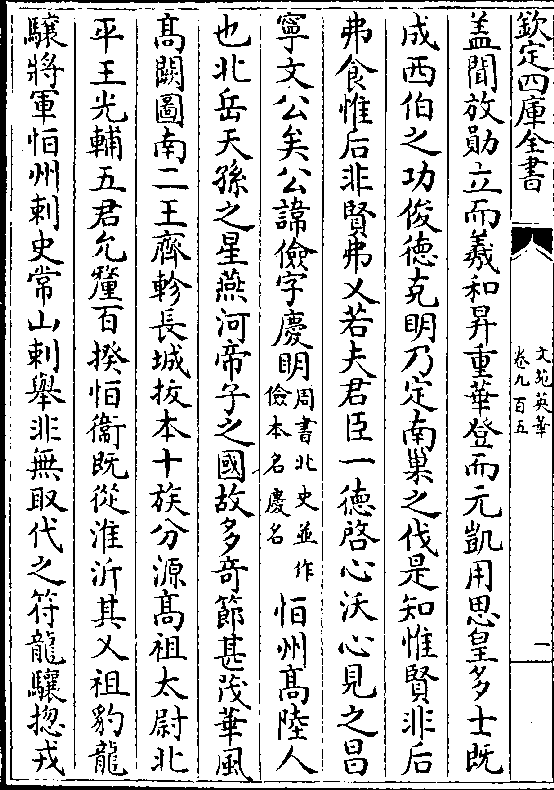 欽定四庫全書
文苑英華
卷九百五
一
盖聞放勛立而羲和昇重華登而元凱用思皇多士既
成西伯之功俊徳克明乃定南巢之伐是知惟賢非后
弗食惟后非賢弗乂若夫君臣一徳啓心沃心見之昌
寧文公矣公諱儉字慶明周書北史並作儉本名慶名恒州髙陸人
也北岳天孫之星燕河帝子之國故多竒節甚茂華風
髙闕圖南二王齊軫長城抜本十族分源髙祖太尉北
平王光輔五君允釐百揆恒衞既從淮沂其乂祖豹龍
驤將軍恒州刺史常山剌舉非無取代之符龍驤揔戎